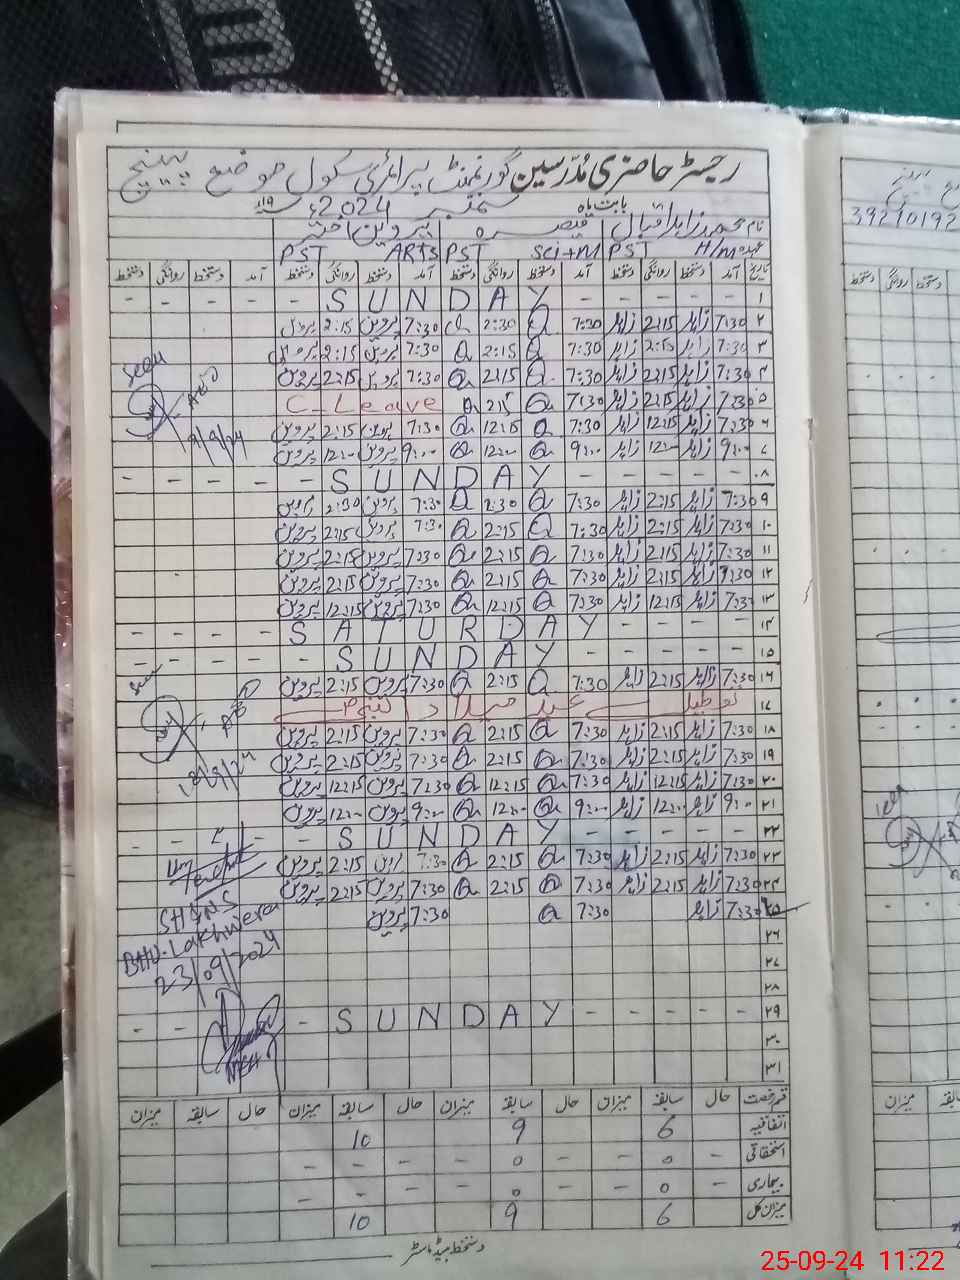 رجسٹر حاضری مدرسین گورنمنٹ پرائمری سکول موضع
بابت ماہ ستمبر 2024ء
نام محمد زاہد اقبال قیصرہ پروین اختر
عہدہ H/m PST Sci+M PST ARTS PST
تاریخ آمد دستخط روانگی دستخط آمد دستخط روانگی دستخط آمد دستخط روانگی دستخط آمد دستخط روانگی دستخط
۱ - - - - SUNDAY - - - - -
۲ 7:30 زاہد 2:15 زاہد 7:30 Q 2:30 Q 7:30 پروین 2:15 پروین
۳ 7:30 زاہد 2:15 زاہد 7:30 Q 2:15 Q 7:30 پروین 2:15 پروین
۴ 7:30 زاہد 2:15 زاہد 7:30 Q 2:15 Q 7:30 پروین 2:15 پروین
۵ 7:30 زاہد 2:15 زاہد 7:30 Q 2:15 Q C-Leave
۶ 7:30 زاہد 12:15 زاہد 7:30 Q 12:15 Q 7:30 پروین 2:15 پروین
۷ 9:00 زاہد 12:00 زاہد 9:00 Q 12:00 Q 9:00 پروین 12:00 پروین
۸ - - - - SUNDAY - - - - -
۹ 7:30 زاہد 2:15 زاہد 7:30 Q 2:30 Q 7:30 پروین 2:30 پروین
۱۰ 7:30 زاہد 2:15 زاہد 7:30 Q 2:15 Q 7:30 پروین 2:15 پروین
۱۱ 7:30 زاہد 2:15 زاہد 7:30 Q 2:15 Q 7:30 پروین 2:15 پروین
۱۲ 7:30 زاہد 2:15 زاہد 7:30 Q 2:15 Q 7:30 پروین 2:15 پروین
۱۳ 7:30 زاہد 12:15 زاہد 7:30 Q 12:15 Q 7:30 پروین 12:15 پروین
۱۴ - - - - SATURDAY - - - -
۱۵ - - - - SUNDAY - - - - -
۱۶ 7:30 زاہد 2:15 زاہد 7:30 Q 2:15 Q 7:30 پروین 2:15 پروین
۱۷ تعطیل عید میلاد النبی
۱۸ 7:30 زاہد 2:15 زاہد 7:30 Q 2:15 Q 7:30 پروین 2:15 پروین
۱۹ 7:30 زاہد 2:15 زاہد 7:30 Q 2:15 Q 7:30 پروین 2:15 پروین
۲۰ 7:30 زاہد 12:15 زاہد 7:30 Q 12:15 Q 7:30 پروین 12:15 پروین
۲۱ 9:00 زاہد 12:00 زاہد 9:00 Q 12:00 Q 9:00 پروین 12:00 پروین
۲۲ - - - - SUNDAY - - -
۲۳ 7:30 زاہد 2:15 زاہد 7:30 Q 2:15 Q 7:30 پروین 2:15 پروین
۲۴ 7:30 زاہد 2:15 زاہد 7:30 Q 2:15 Q 7:30 پروین 2:15 پروین
۲۵ 7:30 زاہد 7:30 Q 7:30 پروین
۲۶
۲۷
۲۸
۲۹ - - - - SUNDAY - - -
۳۰
۳۱
Seen
AEO
9/9/24
Seen
AEO
18/9/24
SH&NS
BHU-Lakhwera
23/09/2024
قسم رخصت حال سابقہ میزان حال سابقہ میزان حال سابقہ میزان حال سابقہ میزان
اتفاقیہ 6 9 10
استحقاقی - 0 - - 0 - - - -
بیماری - 0 - - 0 - - - -
میزان کل 6 9 10
دستخط ہیڈ ماسٹر
39210192
دستخط روانگی دستخط
Seen
میزان
25-09-24 11:22